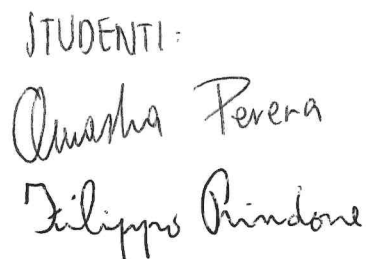 STUDENTI:
Omasha Perera
Filippo Prindone